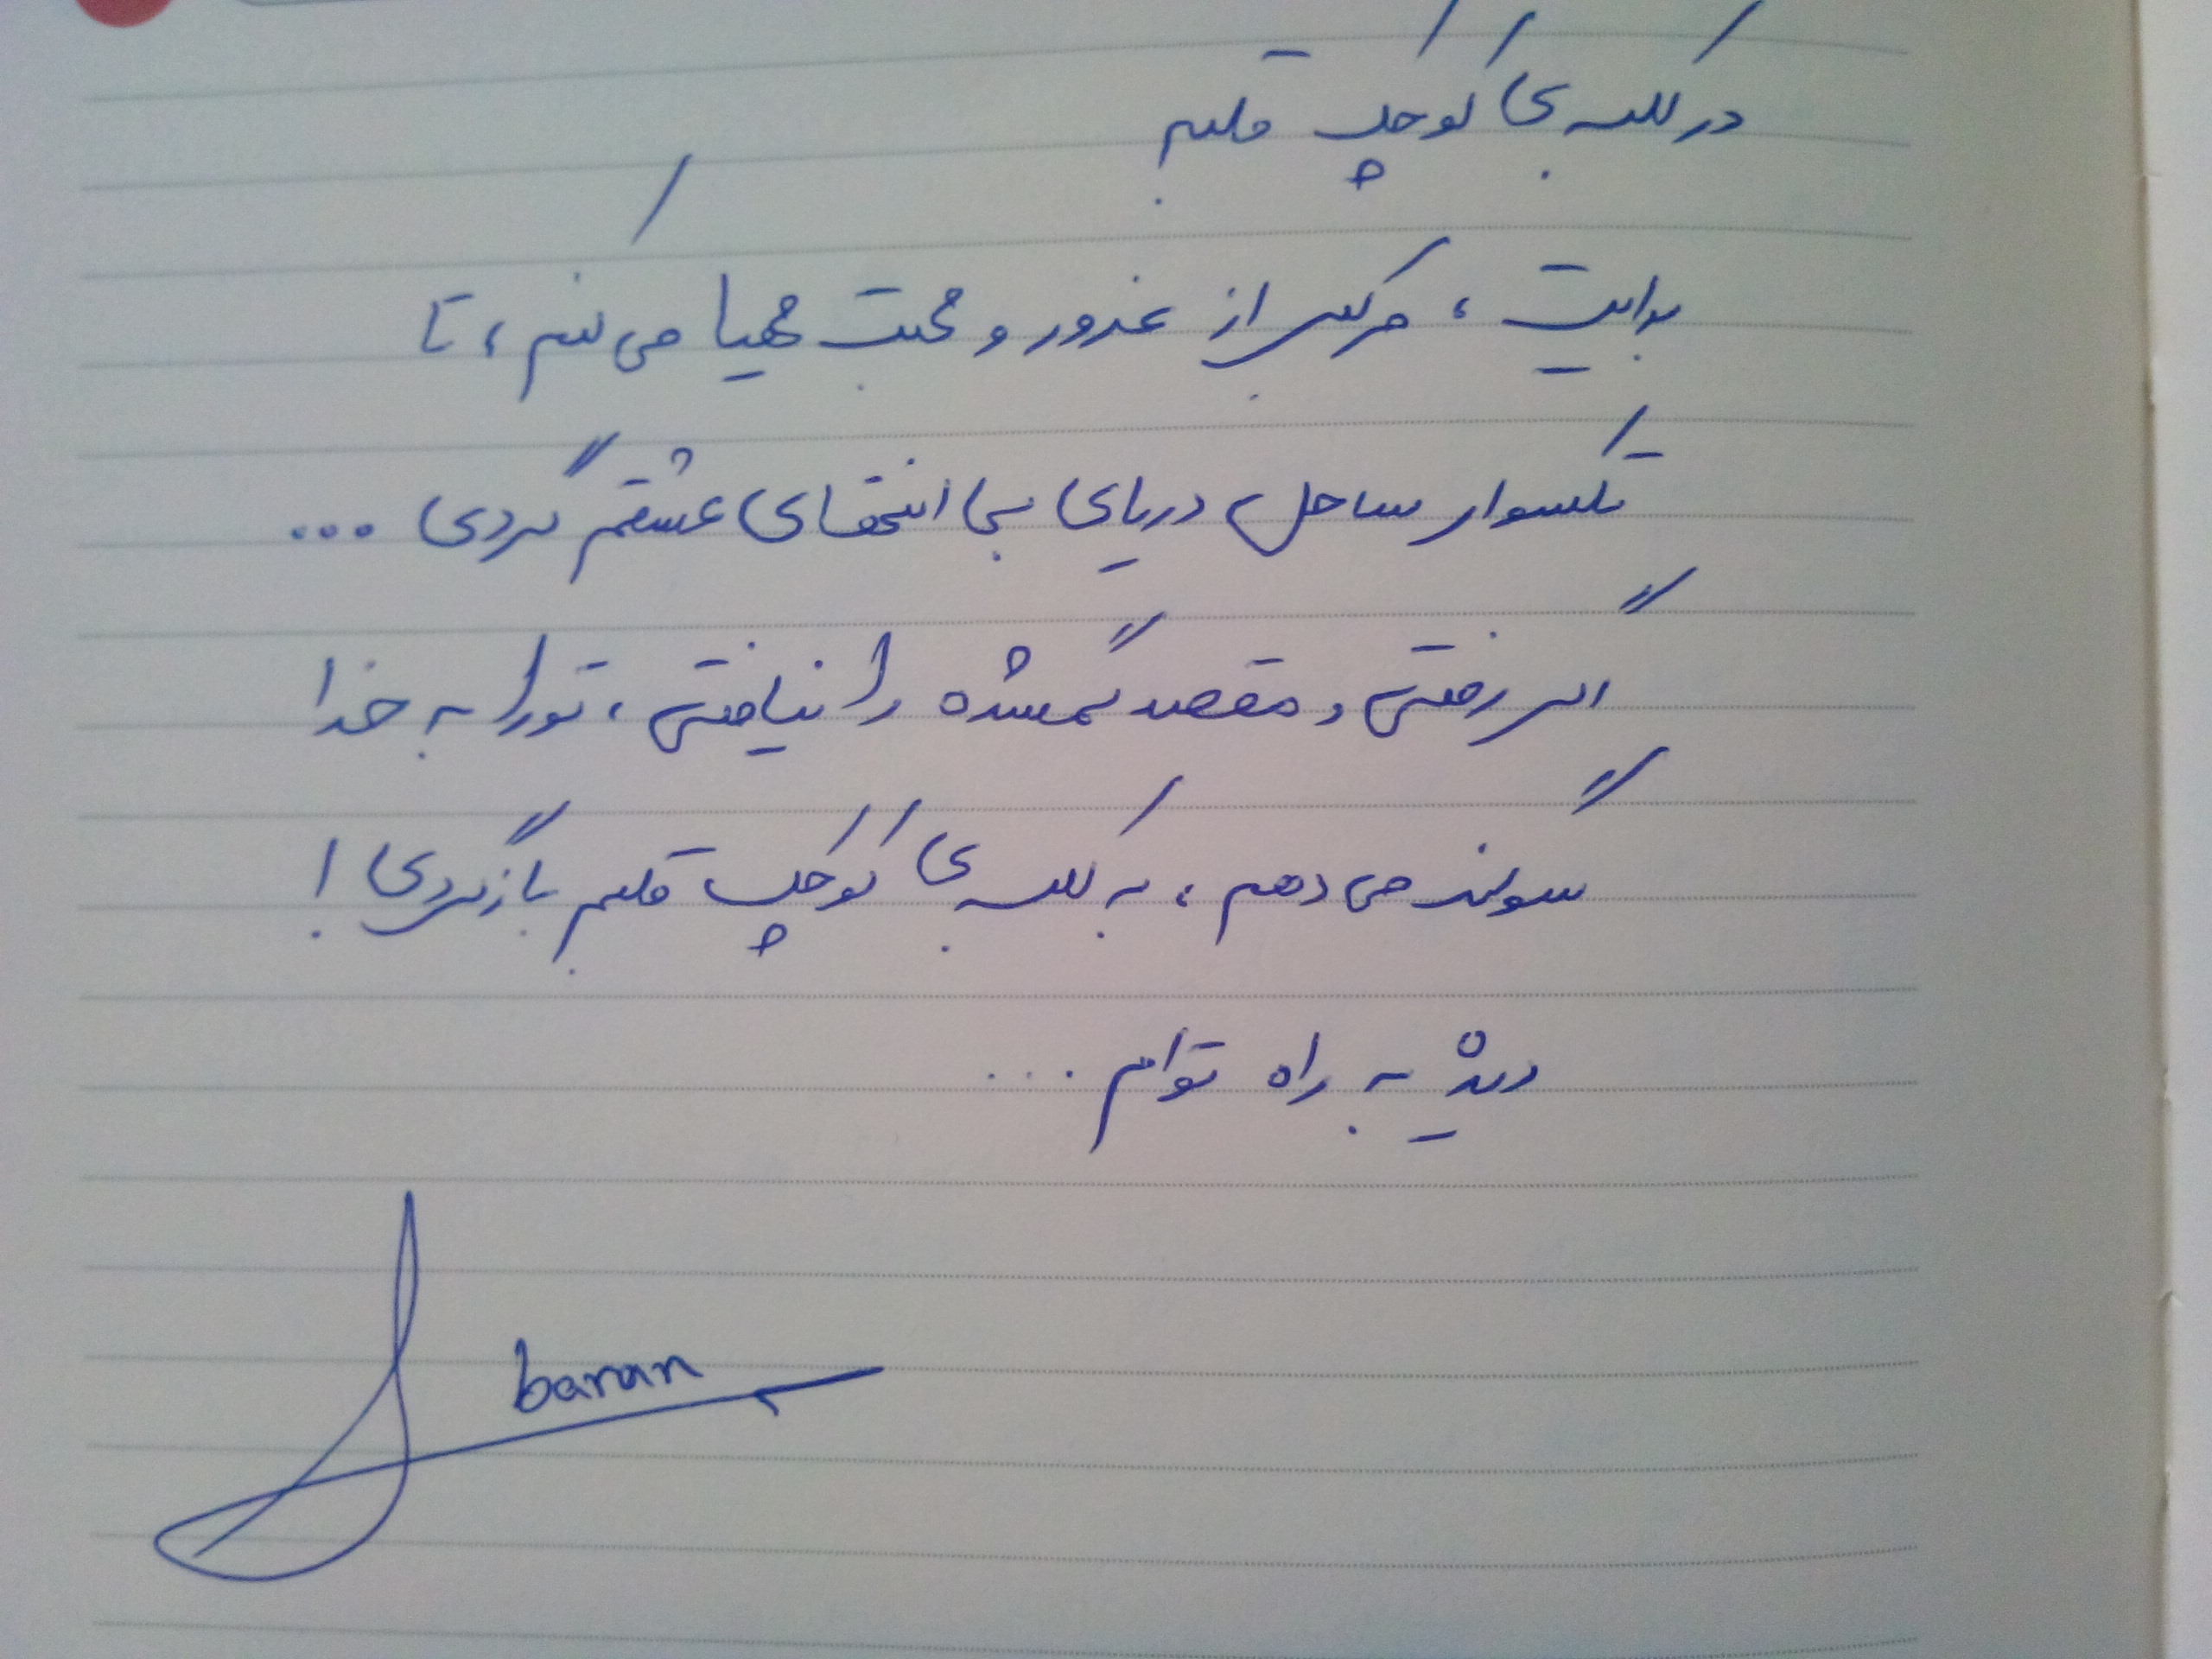 در کلبه ی کوچک قلبم
برایت ، مرکبی از غرور و محبت مهیا می کنم ، تا
تکسوار ساحل دریای بی انتهای عشقم گردی ...
اگر رفتی و مقصد گمشده را نیافتی ، تو را به خدا
سوگند می دهم ، به کلبه ی کوچک قلبم بازگردی !
دیده به راه توام ...
baran